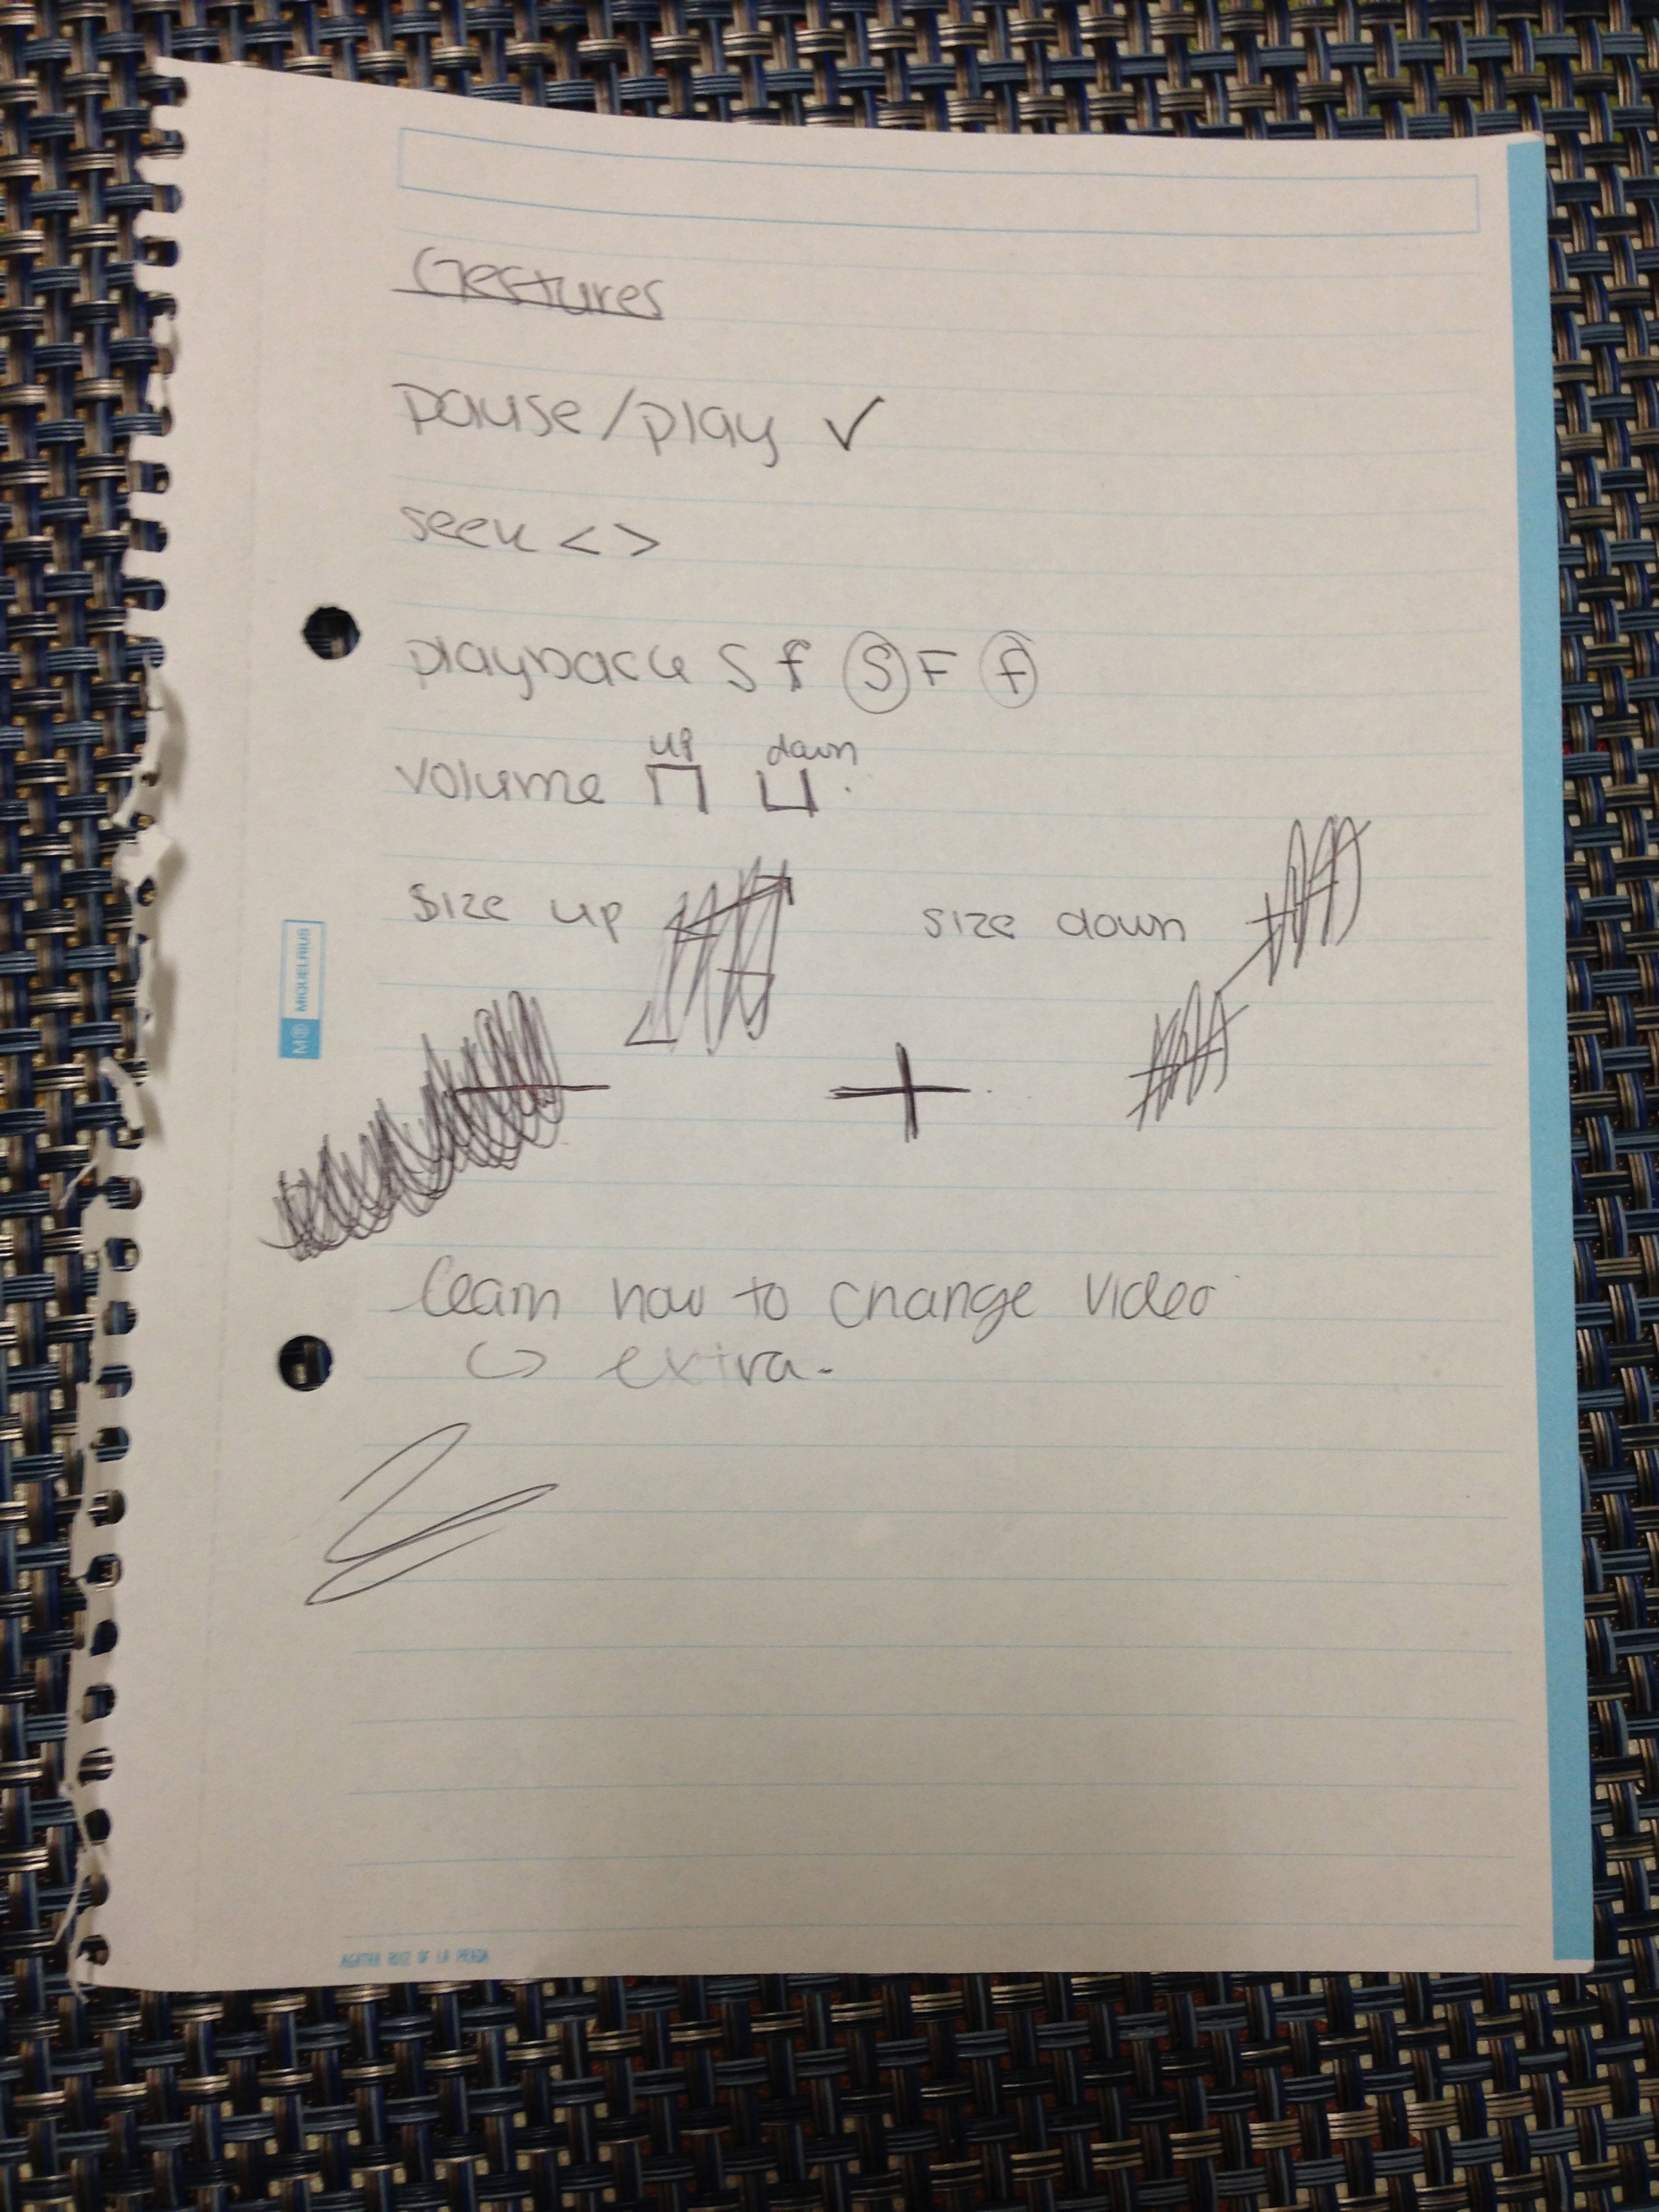 Gestures
pause/play ✓
seek < >
playback S f Ⓢ F ⓕ
up down
volume ⊓ ⊔
size up size down
− +
learn how to change video
↪ extra.
M® MIQUELRIUS
AGATHA RUIZ DE LA PRADA